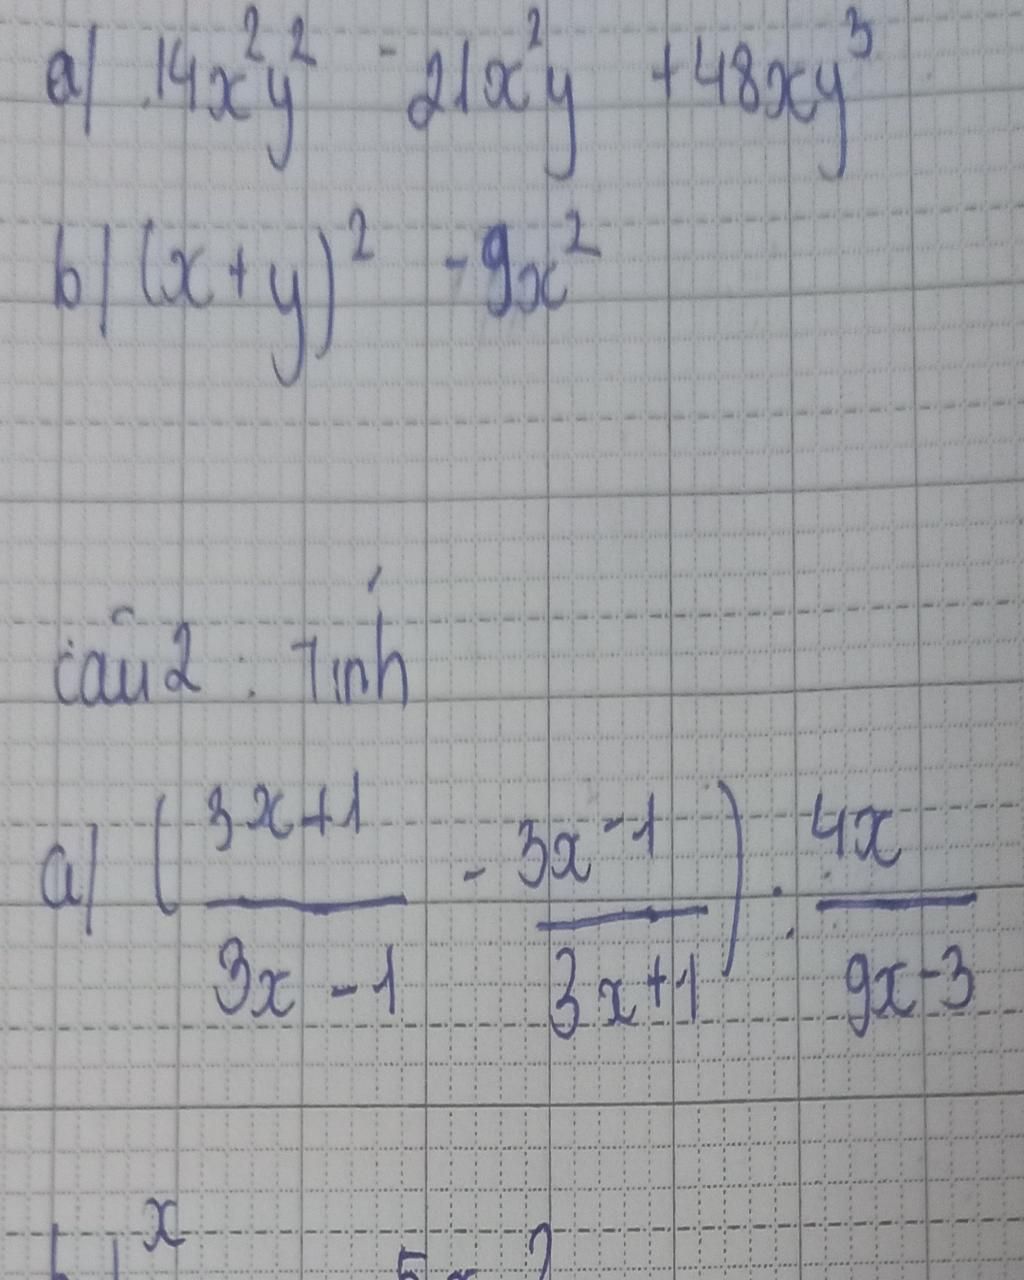 a) 14x²y² - 21x²y + 48xy³
b) (x+y)² - 9x²
câu 2 : Tính
a) ( (3x+1)/(3x-1) - (3x-1)/(3x+1) ) : 4x/(9x-3)